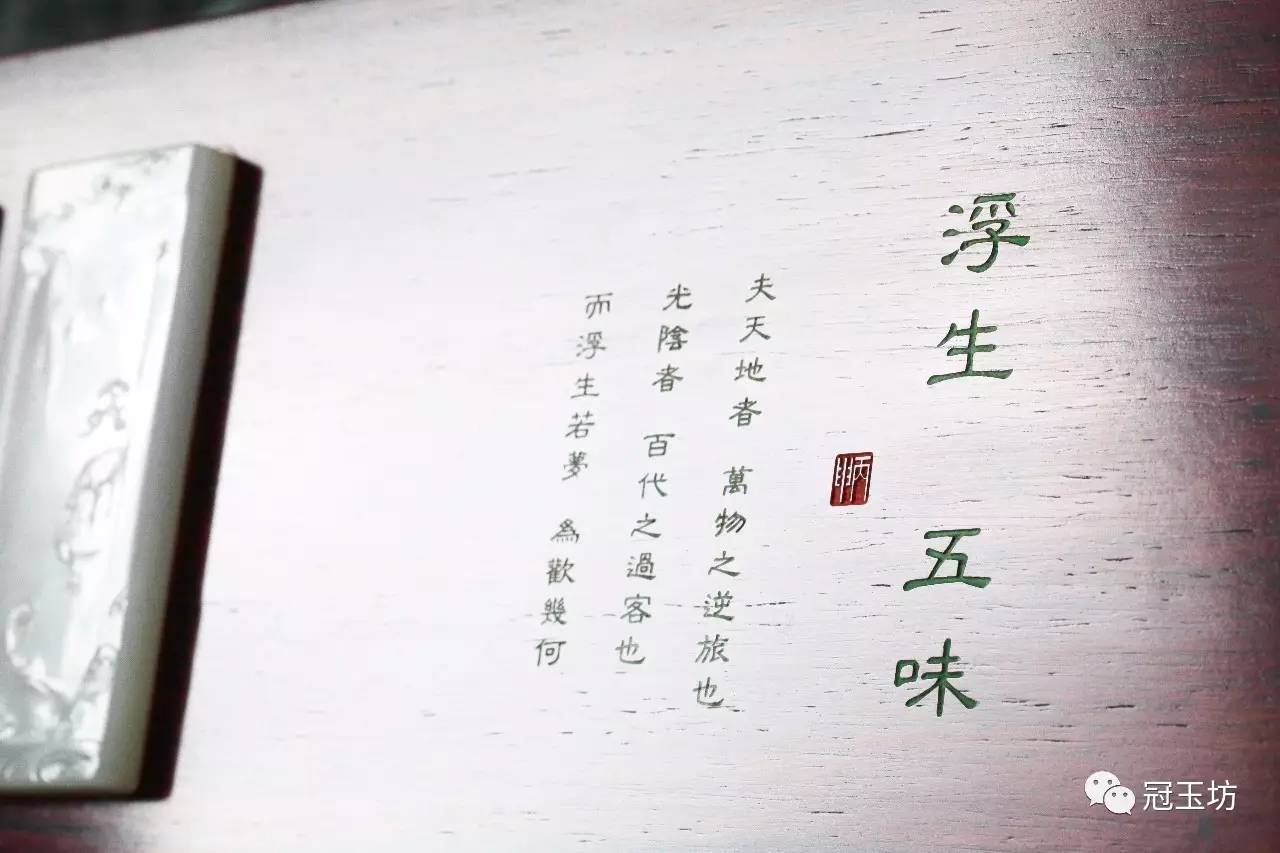 浮生 五味
夫天地者 萬物之逆旅也
光陰者 百代之過客也
而浮生若夢 為歡幾何
冠玉坊